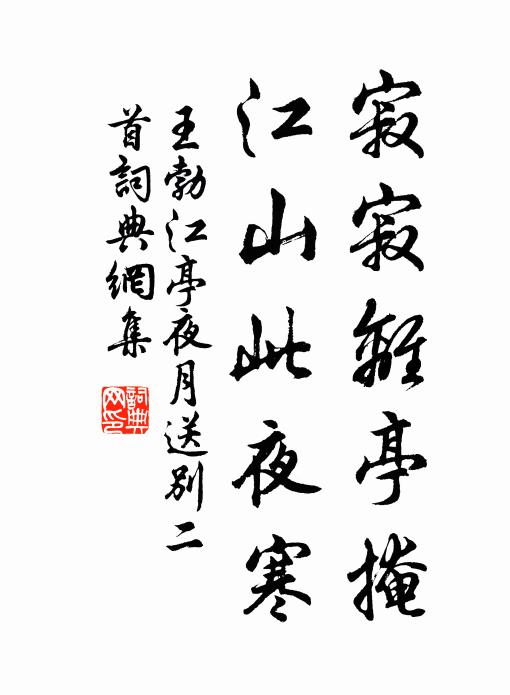 寂寂離亭掩
江山此夜寒
王勃江亭夜月送別二
首詞典網集
詞典
网印